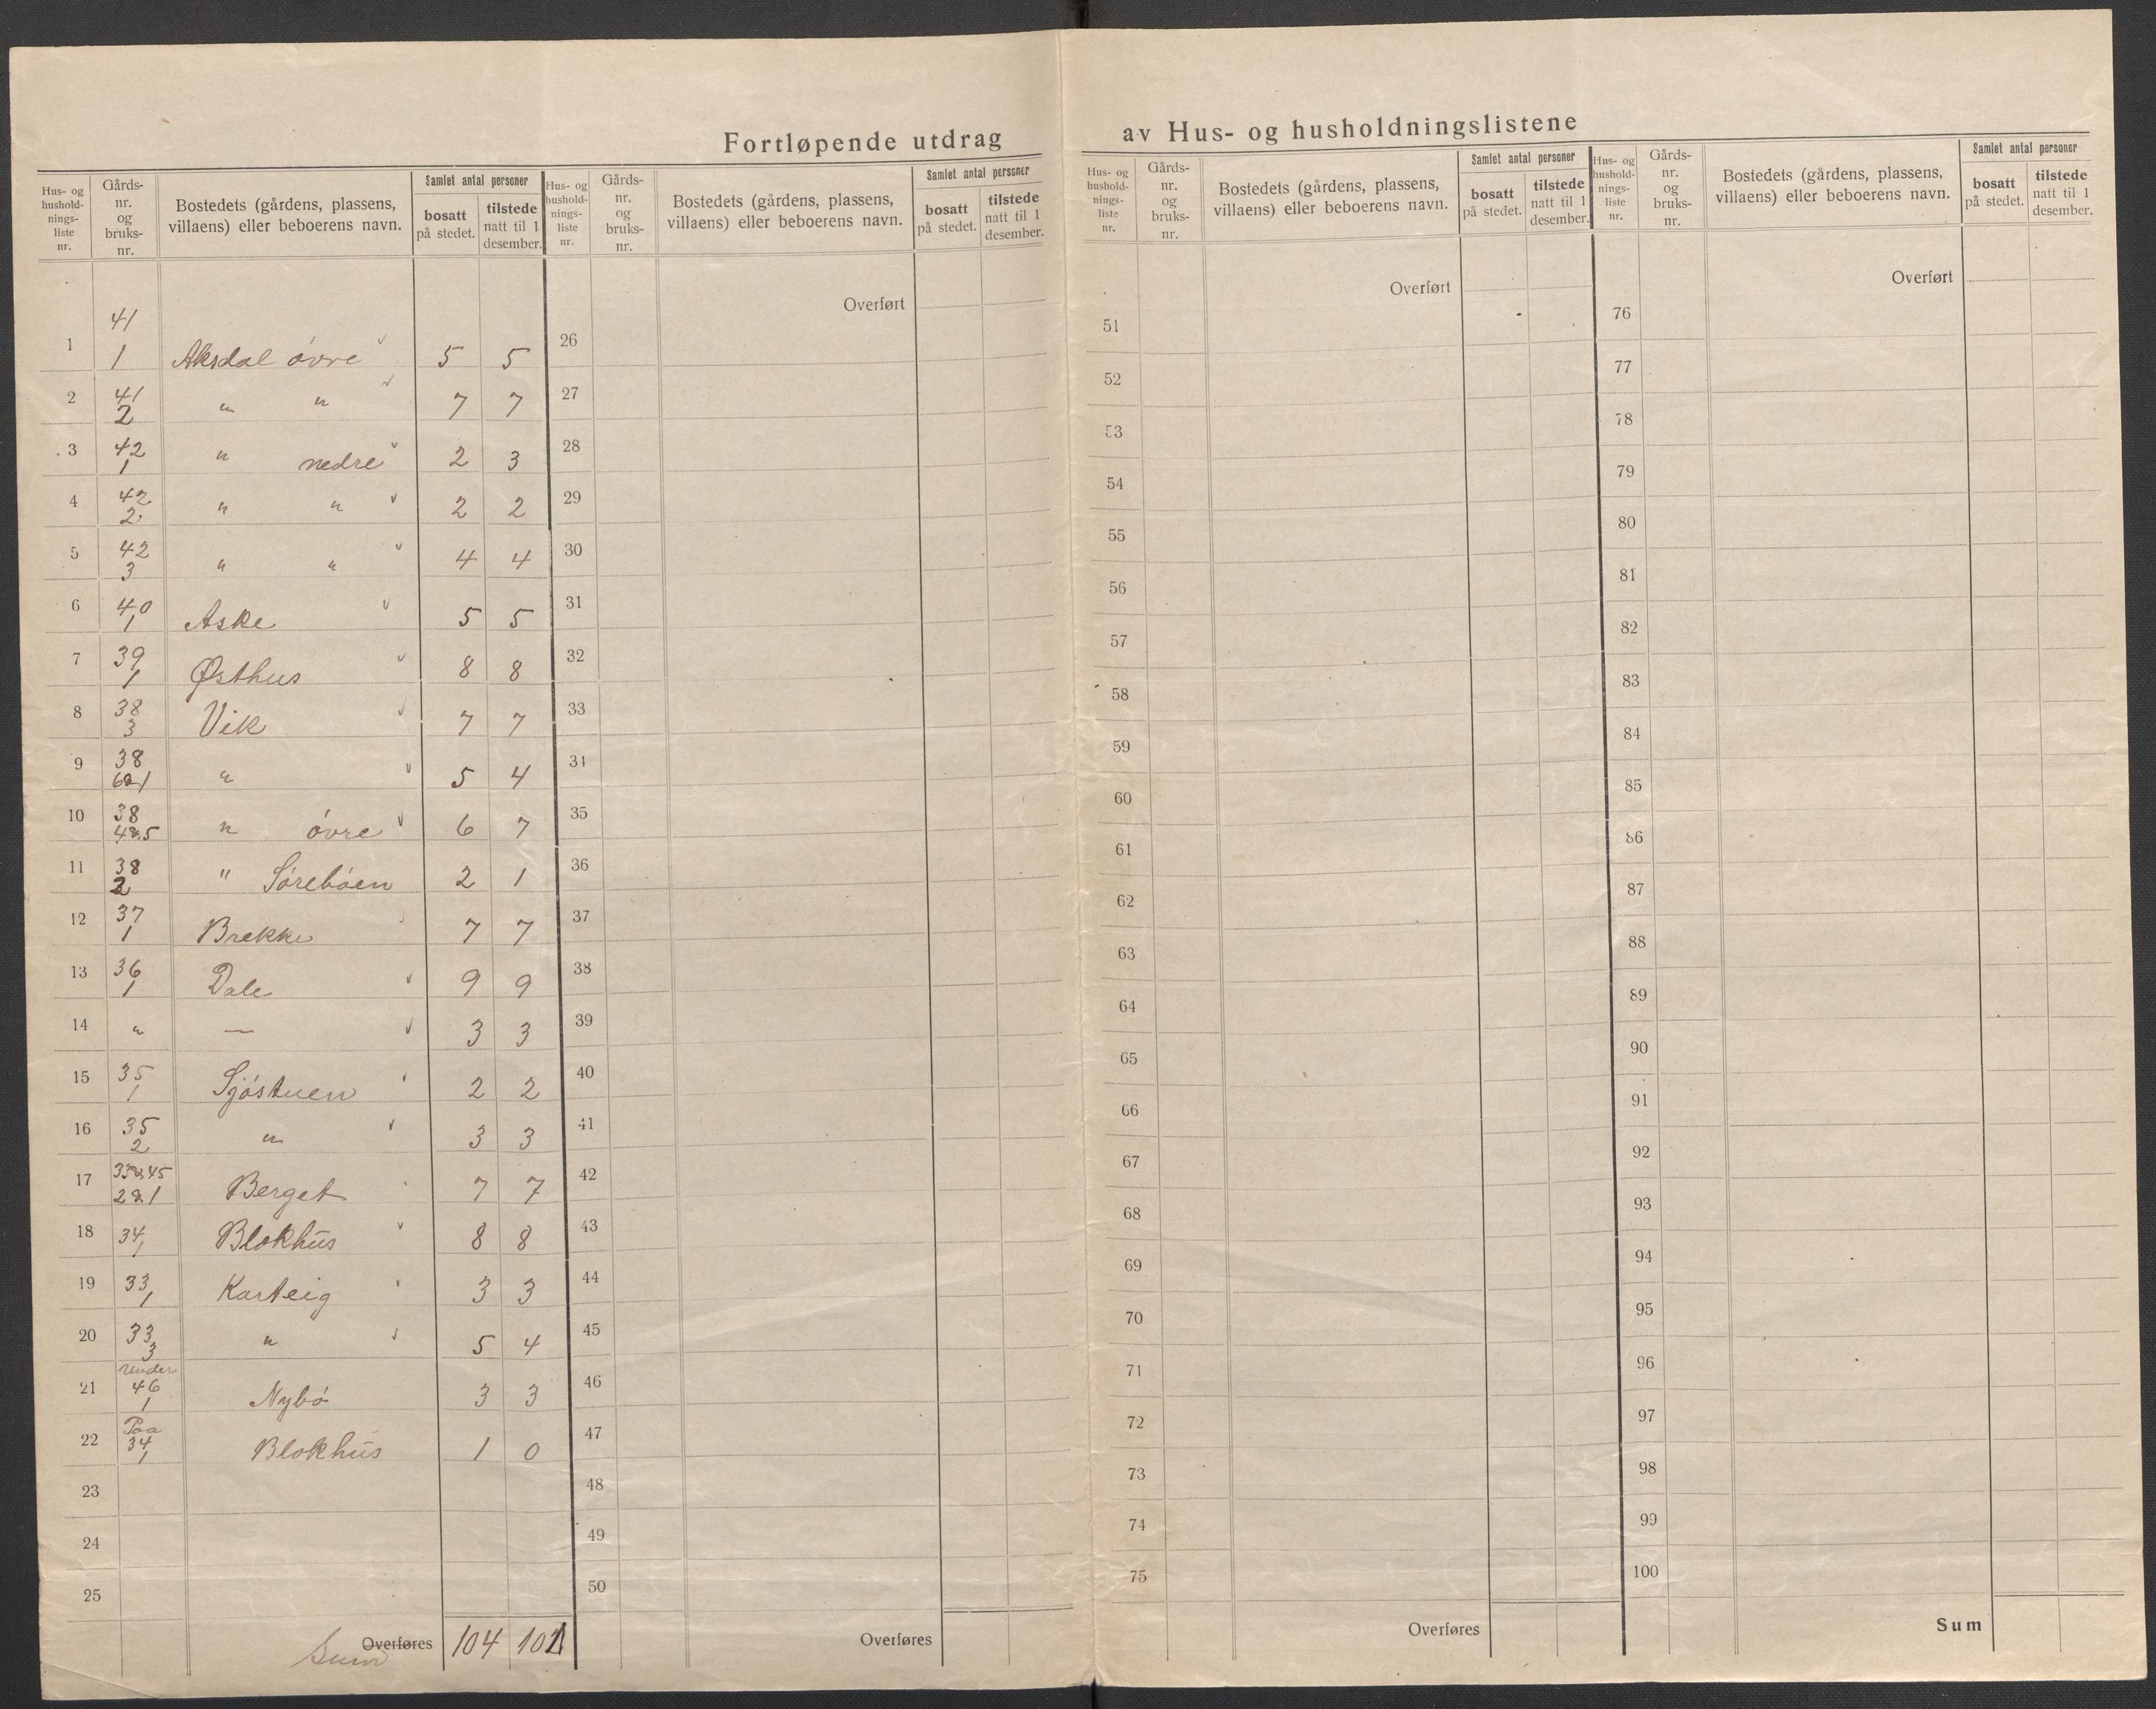 Fortløpende utdrag av Hus- og husholdningslistene
Hus- og hushold-nings-liste nr. | Gårds-nr. og bruks-nr. | Bostedets (gårdens, plassens, villaens) eller beboerens navn. | Samlet antal personer | bosatt på stedet. | tilstede natt til 1 desember.
1 | 41 1 | Aksdal óvre | 5 | 5
2 | 41 2 | " " | 7 | 7
3 | 42 1 | " nedre | 2 | 3
4 | 42 2 | " " | 2 | 2
5 | 42 3 | " " | 4 | 4
6 | 40 1 | Aske | 5 | 5
7 | 39 1 | Østhus | 8 | 8
8 | 38 3 | Vik | 7 | 7
9 | 38 6&1 | " | 5 | 4
10 | 38 4&5 | " óvre | 6 | 7
11 | 38 2 | " Sórebóen | 2 | 1
12 | 37 1 | Brekke | 7 | 7
13 | 36 1 | Dale | 9 | 9
14 | " | — | 3 | 3
15 | 35 1 | Sjóstuen | 2 | 2
16 | 35 2 | " | 3 | 3
17 | 33&45 2&1 | Berget | 7 | 7
18 | 34 1 | Blokhus | 8 | 8
19 | 33 1 | Karteig | 3 | 3
20 | 33 3 | " | 5 | 4
21 | under 46 1 | Nybó | 3 | 3
22 | Paa 34 1 | Blokhus | 1 | 0
23
24
25
Overføres Sum | 104 | 102
Hus- og hushold-nings-liste nr. | Gårds-nr. og bruks-nr. | Bostedets (gårdens, plassens, villaens) eller beboerens navn. | Samlet antal personer | bosatt på stedet. | tilstede natt til 1 desember.
Overført
26
27
28
29
30
31
32
33
34
35
36
37
38
39
40
41
42
43
44
45
46
47
48
49
50
Overføres
Hus- og hushold-nings-liste nr. | Gårds-nr. og bruks-nr. | Bostedets (gårdens, plassens, villaens) eller beboerens navn. | Samlet antal personer | bosatt på stedet. | tilstede natt til 1 desember.
Overført
51
52
53
54
55
56
57
58
59
60
61
62
63
64
65
66
67
68
69
70
71
72
73
74
75
Overføres
Hus- og hushold-nings-liste nr. | Gårds-nr. og bruks-nr. | Bostedets (gårdens, plassens, villaens) eller beboerens navn. | Samlet antal personer | bosatt på stedet. | tilstede natt til 1 desember.
Overført
76
77
78
79
80
81
82
83
84
85
86
87
88
89
90
91
92
93
94
95
96
97
98
99
100
Sum